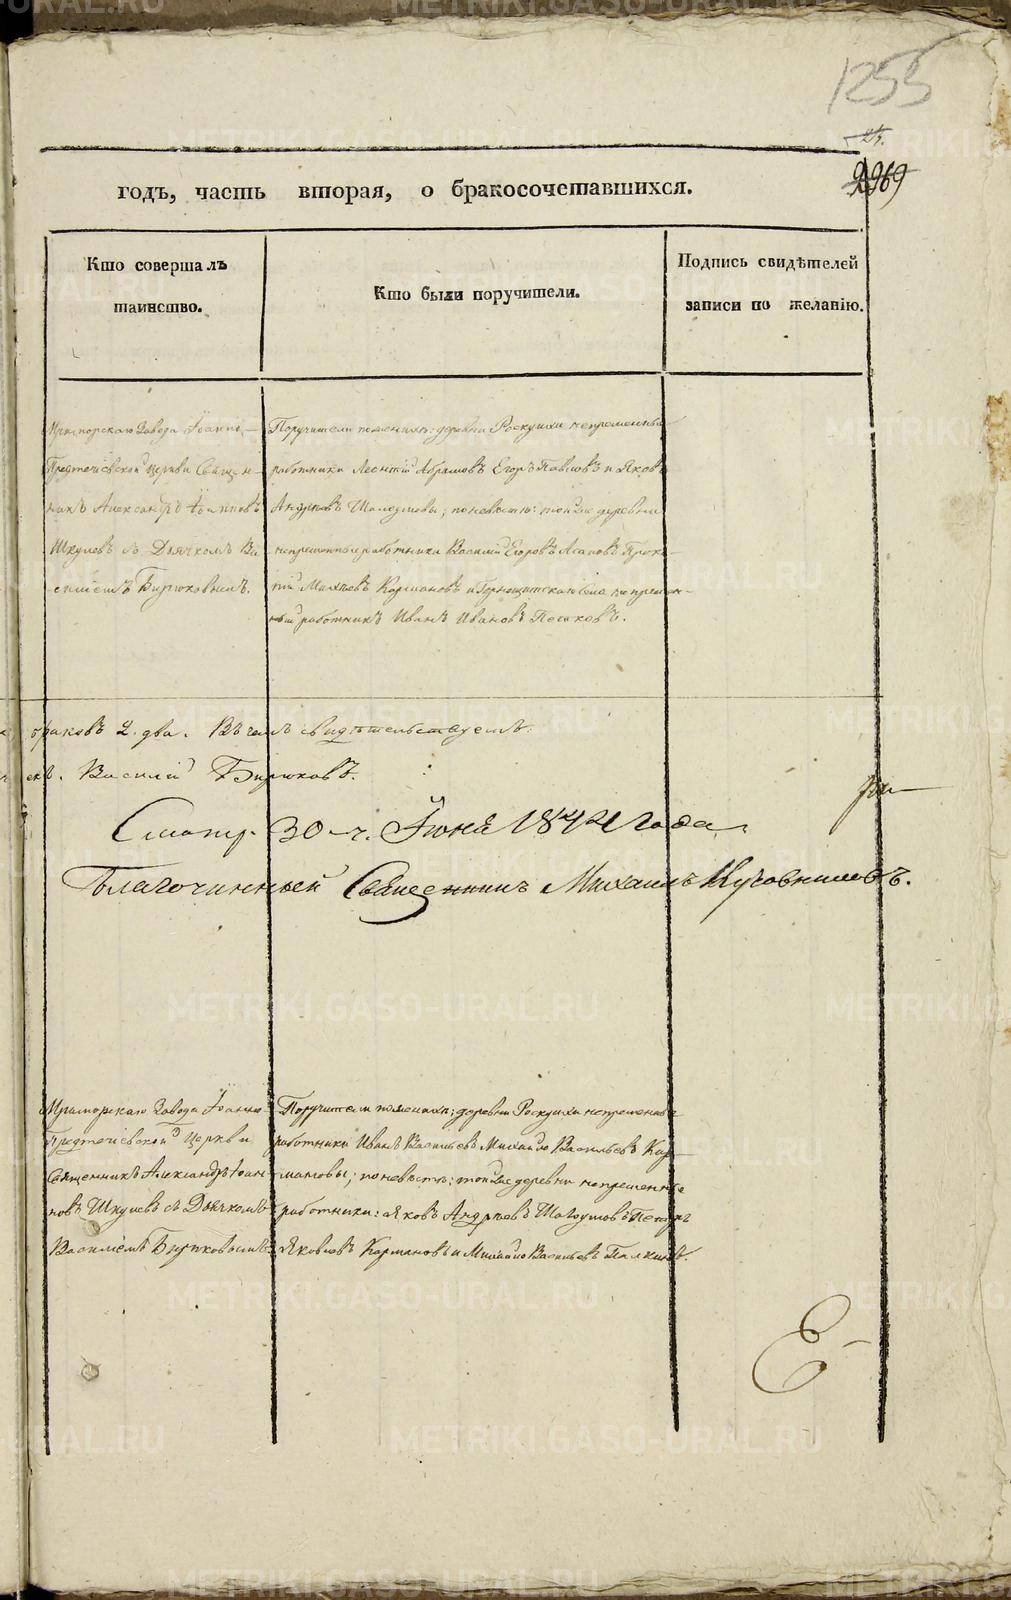 1255
24.
2969
годъ, часть вторая, о бракосочетавшихся.
Кто совершалъ
таинство.
Кто были поручители.
Подпись свидѣтелей
записи по желанію.
Мраморскаго Завода Іоанно-
Предтечевской Церкви Священ-
никъ Александръ Іоанновъ
Шкулевъ съ Дьячкомъ Ва-
силіемъ Бирюковымъ.
Поручители по женихѣ: деревни Роскуихи непременные
работники Леонтій Абрамовъ Егоръ Павловъ и Яковъ
Андреевъ; по невѣстѣ: той же деревни
непременные работники Василий Егоровъ
Кормановъ и Горнощитскаго села непремен-
ный работникъ Иванъ Ивановъ Песковъ.
браковъ 2. два. Въ чемъ свидѣтельствуемъ.
Василій Бирюковъ.
Смотр. 30-ч. Іюня 1842 года
Благочинный Священникъ Михаилъ
Мраморскаго Завода Іоанно-
Предтечевской Церкви
Священникъ Александръ Іоан-
новъ Шкулевъ съ Дьячкомъ
Василіемъ Бирюковымъ.
Поручители по женихѣ: деревни Роскуихи непременные
работники Иванъ Васильевъ Михайло Васильевъ Кор-
мановы; по невѣстѣ: той же деревни непременные
работники: Яковъ Андреевъ Петръ
Яковлевъ Кормановъ и Михайло Васильевъ Палкинъ.